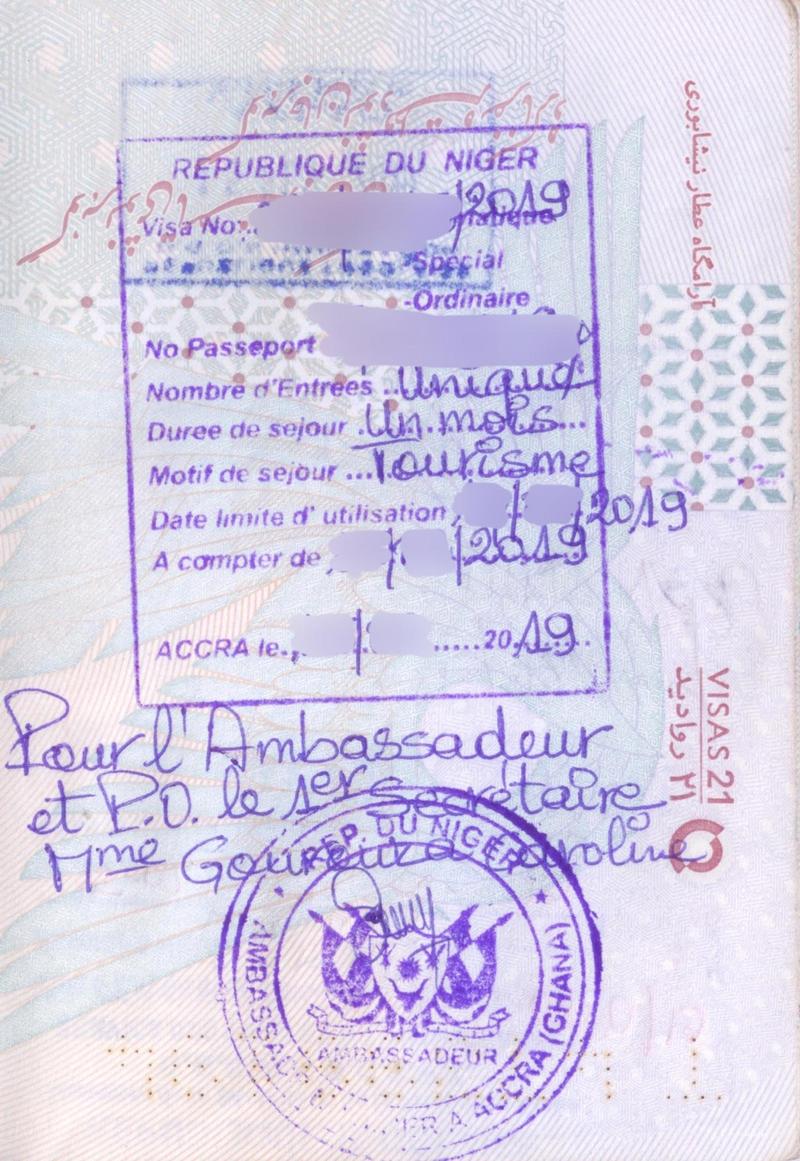 REPUBLIQUE DU NIGER
Visa No:.. /2019
-Special
-Ordinaire
No Passeport
Nombre d'Entrées ..Unique
Duree de sejour .Un.mois...
Motif de sejour ...Tourisme
Date limite d' utilisation / /2019
A compter de / /2019
ACCRA le., / .....2019.
Pour l'Ambassadeur
et P.O. le 1er Secrétaire
Mme Caroline
REP. DU NIGER
AMBASSADEUR
A ACCRA (GHANA)
آرامگاه عطار نیشابوری
VISAS 21
۲۱ روادید